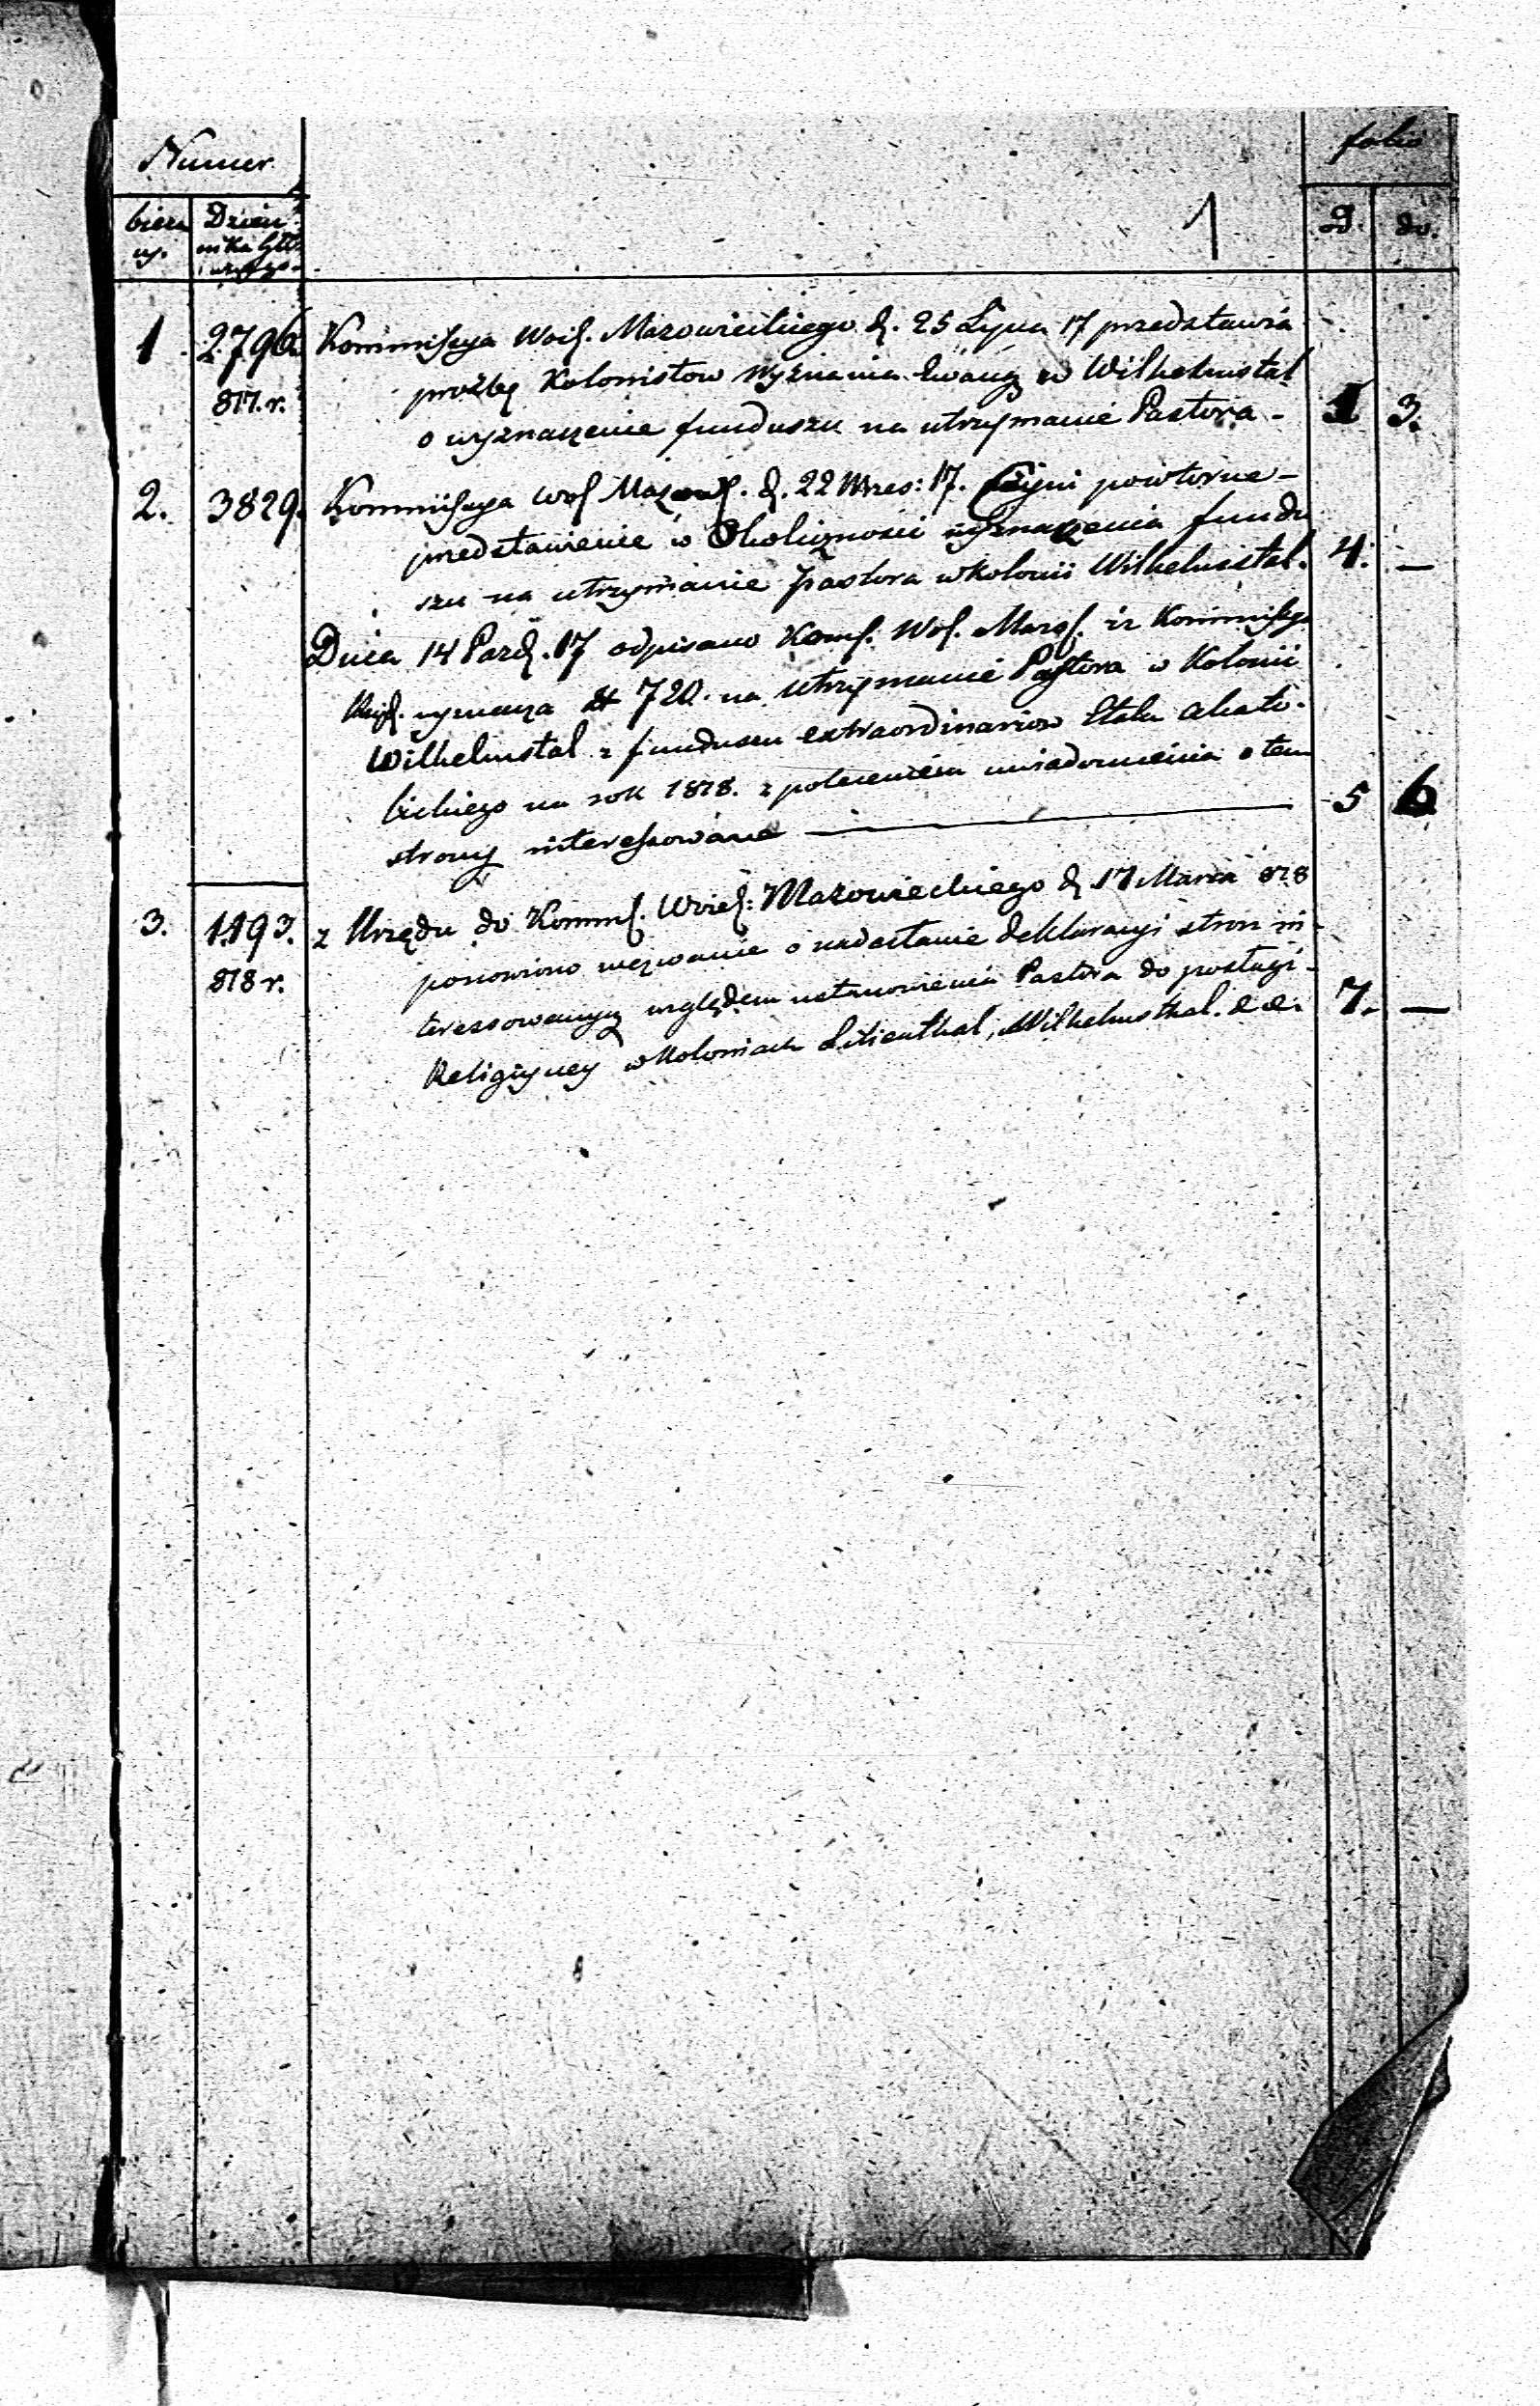 Numer folio
bieżą Dzien 1 od. do.
cy. nika Głó
1 2796. Kommissya Woie. Mazowieckiego d. 25 Lipca 17 przedstawia
817. r. prożbę Kolonistow Wyznania Ewang w Wilhelmstal 1 3.
o wyznaczenie funduszu na utrzymanie Pastora -
2. 3829. Kommissya Wo Mazow. d. 22 Wrzes: 17. Czyni powtorne -
przedstawienie w Okoliczności wyznaczenia fundu
szu na utrzymanie Pastora w Kolonii Wilhelmstal. 4. —
Dnia 14 Pazd. 17 odpisano Kom. Wo. Mazo. iż Kommissya
wyznacza zł 720. na utrzymanie Pastora w Kolonii
Wilhelmstal z funduszu extraordinariow Etatu akato-
lickiego na rok 1818. z poleceniem uwiadomienia o tem
strony interessowane — 5 6
3. 1193. z Urzędu do Komm. Woie: Mazowieckiego d 17 Marca 818
818 r. ponowiono wezwanie o nadesłanie deklaracyi stron in-
teressowanych względem ustanowienia Pastora do posługi - 7. —
Religiyney w Koloniach Lilienthal, Wilhelmsthal. &c.